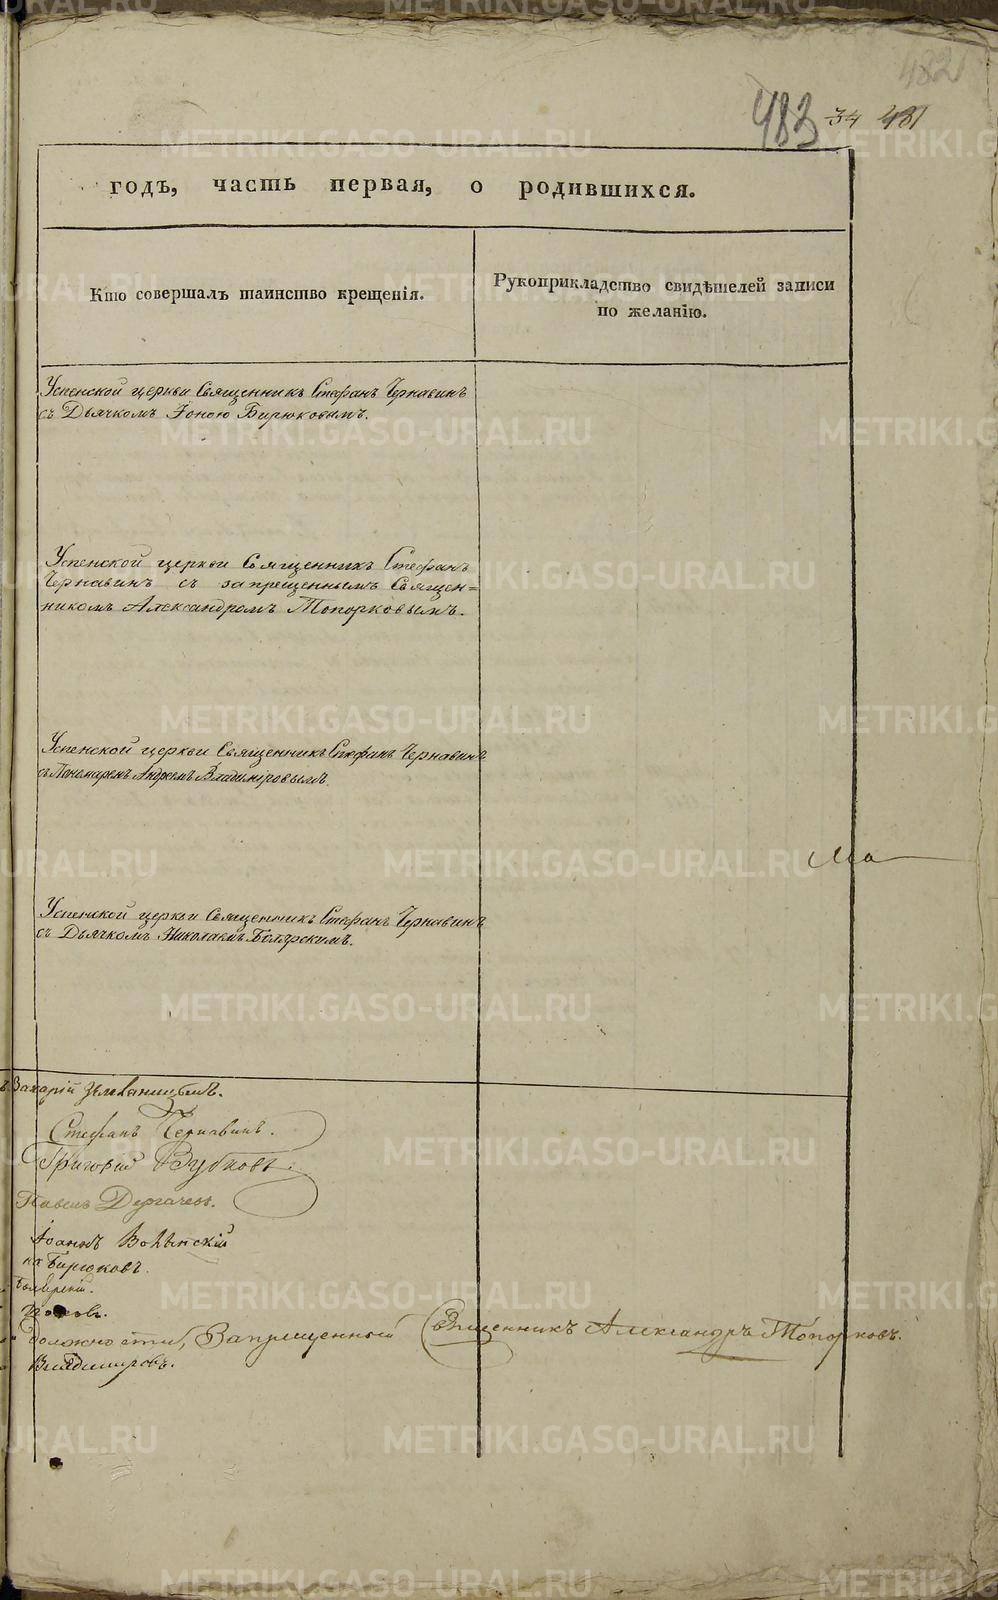 482
483 34 481
годъ, часть первая, о родившихся.
Кто совершалъ таинство крещенія.
Рукоприкладство свидѣтелей записи
по желанію.
Успенской церкви Священникъ Стефанъ Чернавинъ
съ Дьячкомъ Іоною Бирюковымъ.
Успенской церкви Священникъ Стефанъ
Чернавинъ съ запрещеннымъ Священ=
никомъ Александромъ Топорковымъ.
Успенской церкви Священникъ Стефанъ Чернавинъ
съ Пономаремъ Андреемъ Владиміровымъ.
Ма
Успенской церкви Священникъ Стефанъ Чернавинъ
съ Дьячкомъ Николаемъ Боярскимъ.
Захарій
Стефанъ Чернавинъ.
Григорій Зубковъ.
Павелъ Дергачевъ.
Іоаннъ Волынскій
на Бирюковъ.
Боярскій.
Поповъ.
должности, Запрещенный Священникъ Александръ Топорковъ.
Владиміровъ.
METRIKI.GASO-URAL.RU